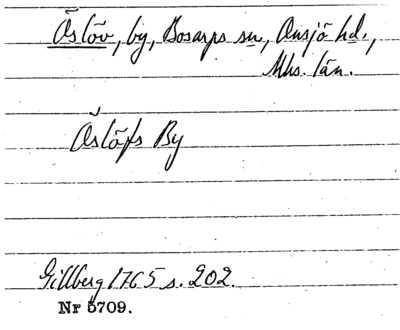 Åslöv, by, Bosarps sn, Onsjö hd.,
Mhs. län.
Åslöfs By
Gillberg 1765 s. 202.
Nr 5709.